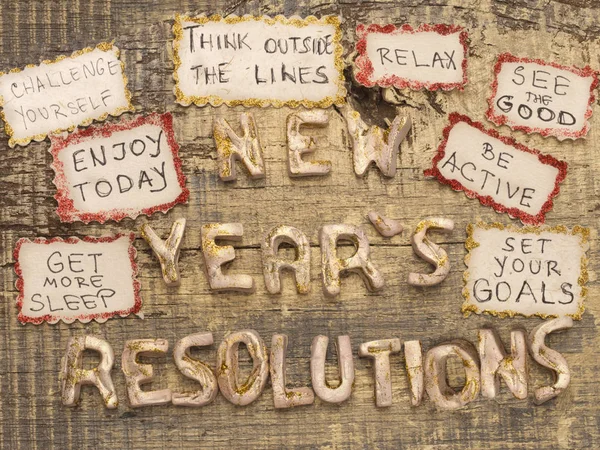 CHALLENGE
YOURSELF
THINK OUTSIDE
THE LINES
RELAX
SEE
THE
GOOD
ENJOY
TODAY
NEW
BE
ACTIVE
YEAR'S
GET
MORE
SLEEP
SET
YOUR
GOALS
RESOLUTIONS